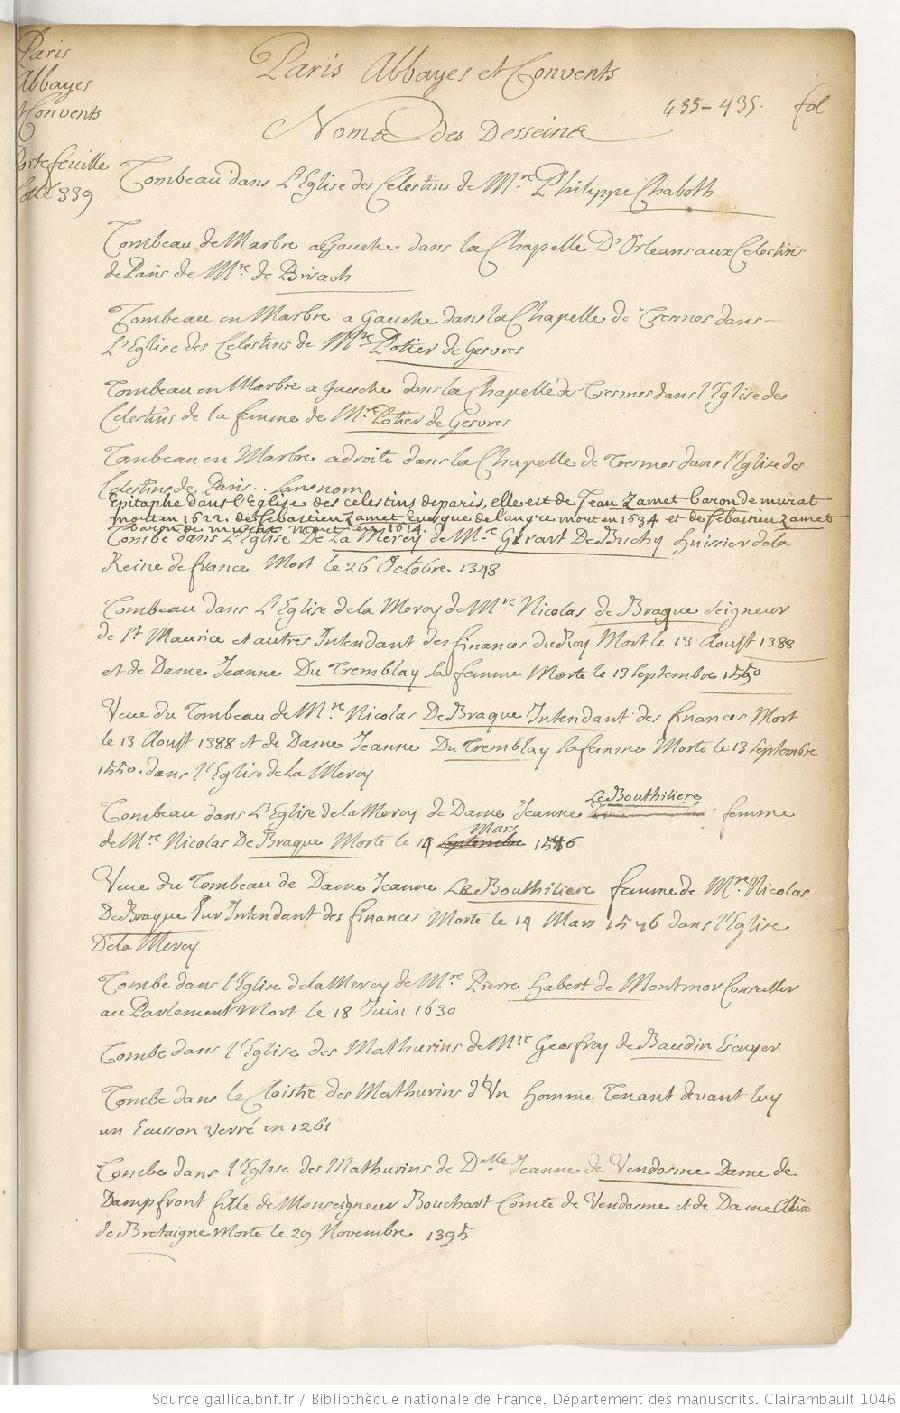 Paris
Abbayes
et Convents
Portefeuille
Cotté 339
Paris Abbayes et Convents
435-435. fol
Noms des Desseins
Tombeau dans L'Eglise des Celestins de Mre Philippe Chaboth
Tombeau de Marbre a Gauche dans la Chapelle D'Orleans aux Celestins
de Paris de Mre de Brisach
Tombeau en Marbre a Gauche dans la Chapelle de Tresmes dans
L'Eglise des Celestins de Mre Potier de Gesvres
Tombeau en Marbre a gauche dans la Chapelle de Tresmes dans l'Eglise des
Celestins de la femme de Mre Potier de Gesvres
Tombeau en Marbre a droite dans la Chapelle de Tresmes dans l'Eglise des
Celestins de Paris .. sans nom
Epitaphe dans l'Eglise des celestins de paris, elle est de Jean Zamet baron de murat
mort en 1622. de Sebastien Zamet Evesque de langre mort en 1634 et de Sebastien Zamet
baron de murat mort en 1614.
Tombe dans L'Eglise De La Mercy de Mre Girart De Buchy huissier de la
Reine de france Mort le 26 Octobre 1348
Tombeau dans L'Eglise de la Mercy de Mre Nicolas de Braque Seigneur
de St Maurice et autres Intendant des finances du Roy Mort le 13 Aoust 1388
et de Dame Jeanne Du Tremblay sa femme Morte le 13 Septembre 1550
Veue du Tombeau de Mre Nicolas De Braque Intendant des finances Mort
le 13 Aoust 1388 et de Dame Jeanne Du Tremblay sa femme Morte le 13 Septembre
1550. dans l'Eglise de la Mercy
Le Bouthiliere
Tombeau dans L'Eglise de la Mercy de Dame Jeanne femme
Mars
de Mre Nicolas De Braque Morte le 19 Septembre 1546
Veue du Tombeau de Dame Jeanne Le Bouthiliere femme de Mre Nicolas
De Braque Sur Intendant des finances Morte le 19 Mars 1546 dans l'Eglise
De la Mercy
Tombe dans l'Eglise de la Mercy de Mre Pierre habert de Montmor Conseiller
au Parlement Mort le 18 Juin 1630
Tombe dans l'Eglise des Mathurins de Mre Geosfrey de Baudin Escuyer
Tombe dans le Cloistre des Mathurins d'Un homme Tenant devant luy
un Ecusson Verré en 1261
Tombe dans l'Eglise des Mathurins de Dlle Jeanne de Vendosme Dame de
Dampfront fille de Monseigneur Bouchart Comte de Vendosme et de Dame Alix
de Bretaigne Morte le 29 Novembre 1395
Source gallica.bnf.fr / Bibliothèque nationale de France. Département des manuscrits. Clairambault 1046